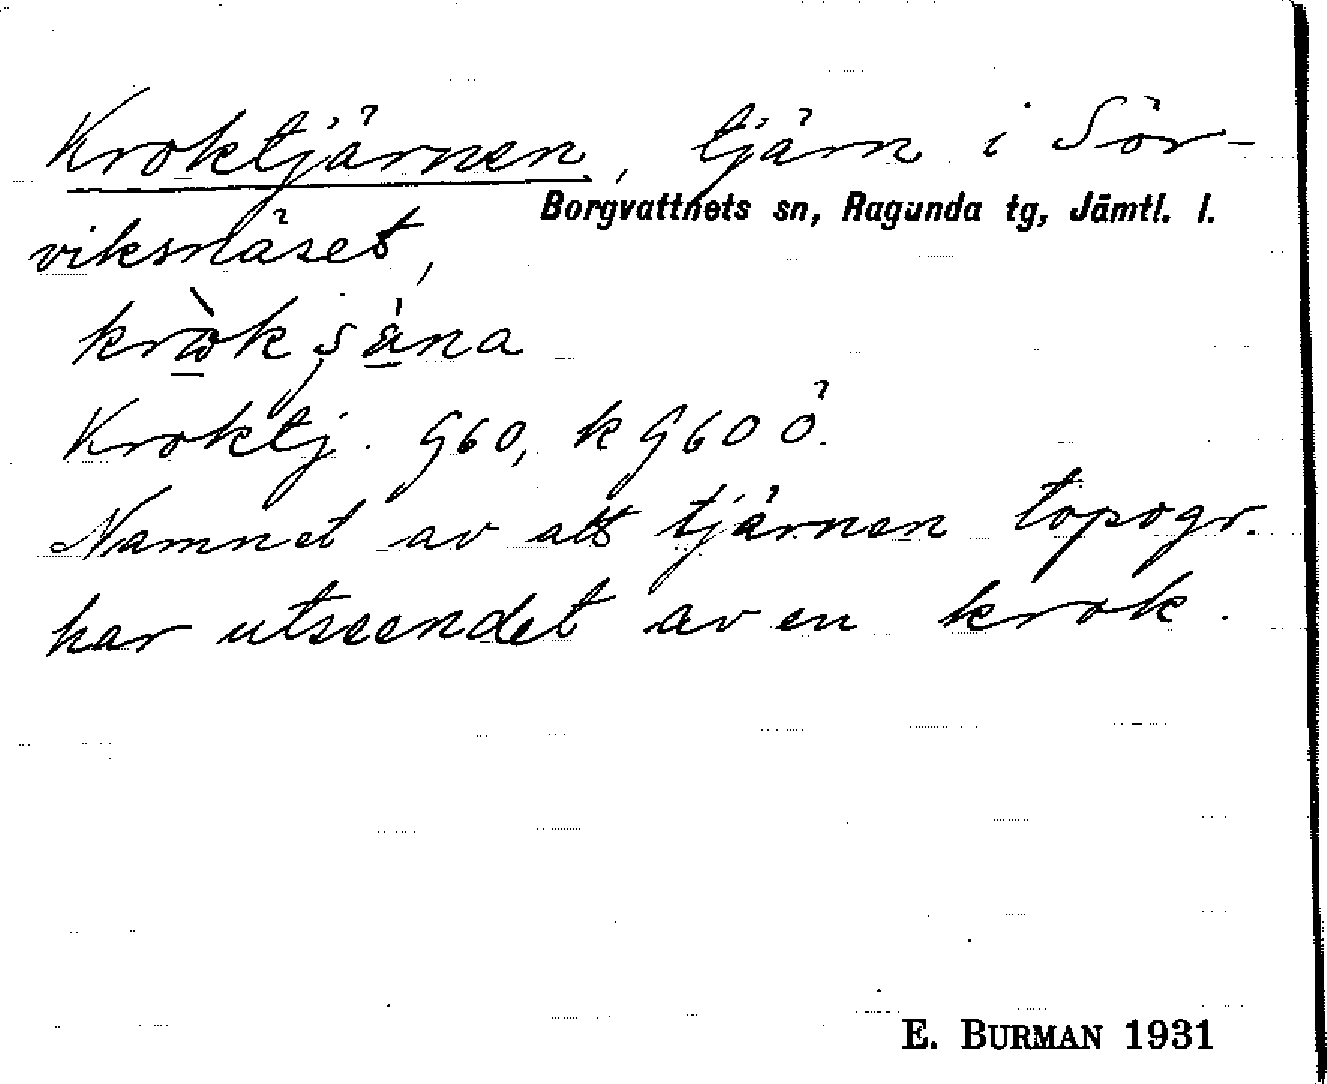 Kroktjärnen, tjärn i Sör-
Borgvattnets sn, Ragunda tg, Jämtl. l.
viksnäset,
Kroktj. G60, k G60 Ö.
Namnet av att tjärnen topogr.
har utseendet av en krok.
E. BURMAN 1931